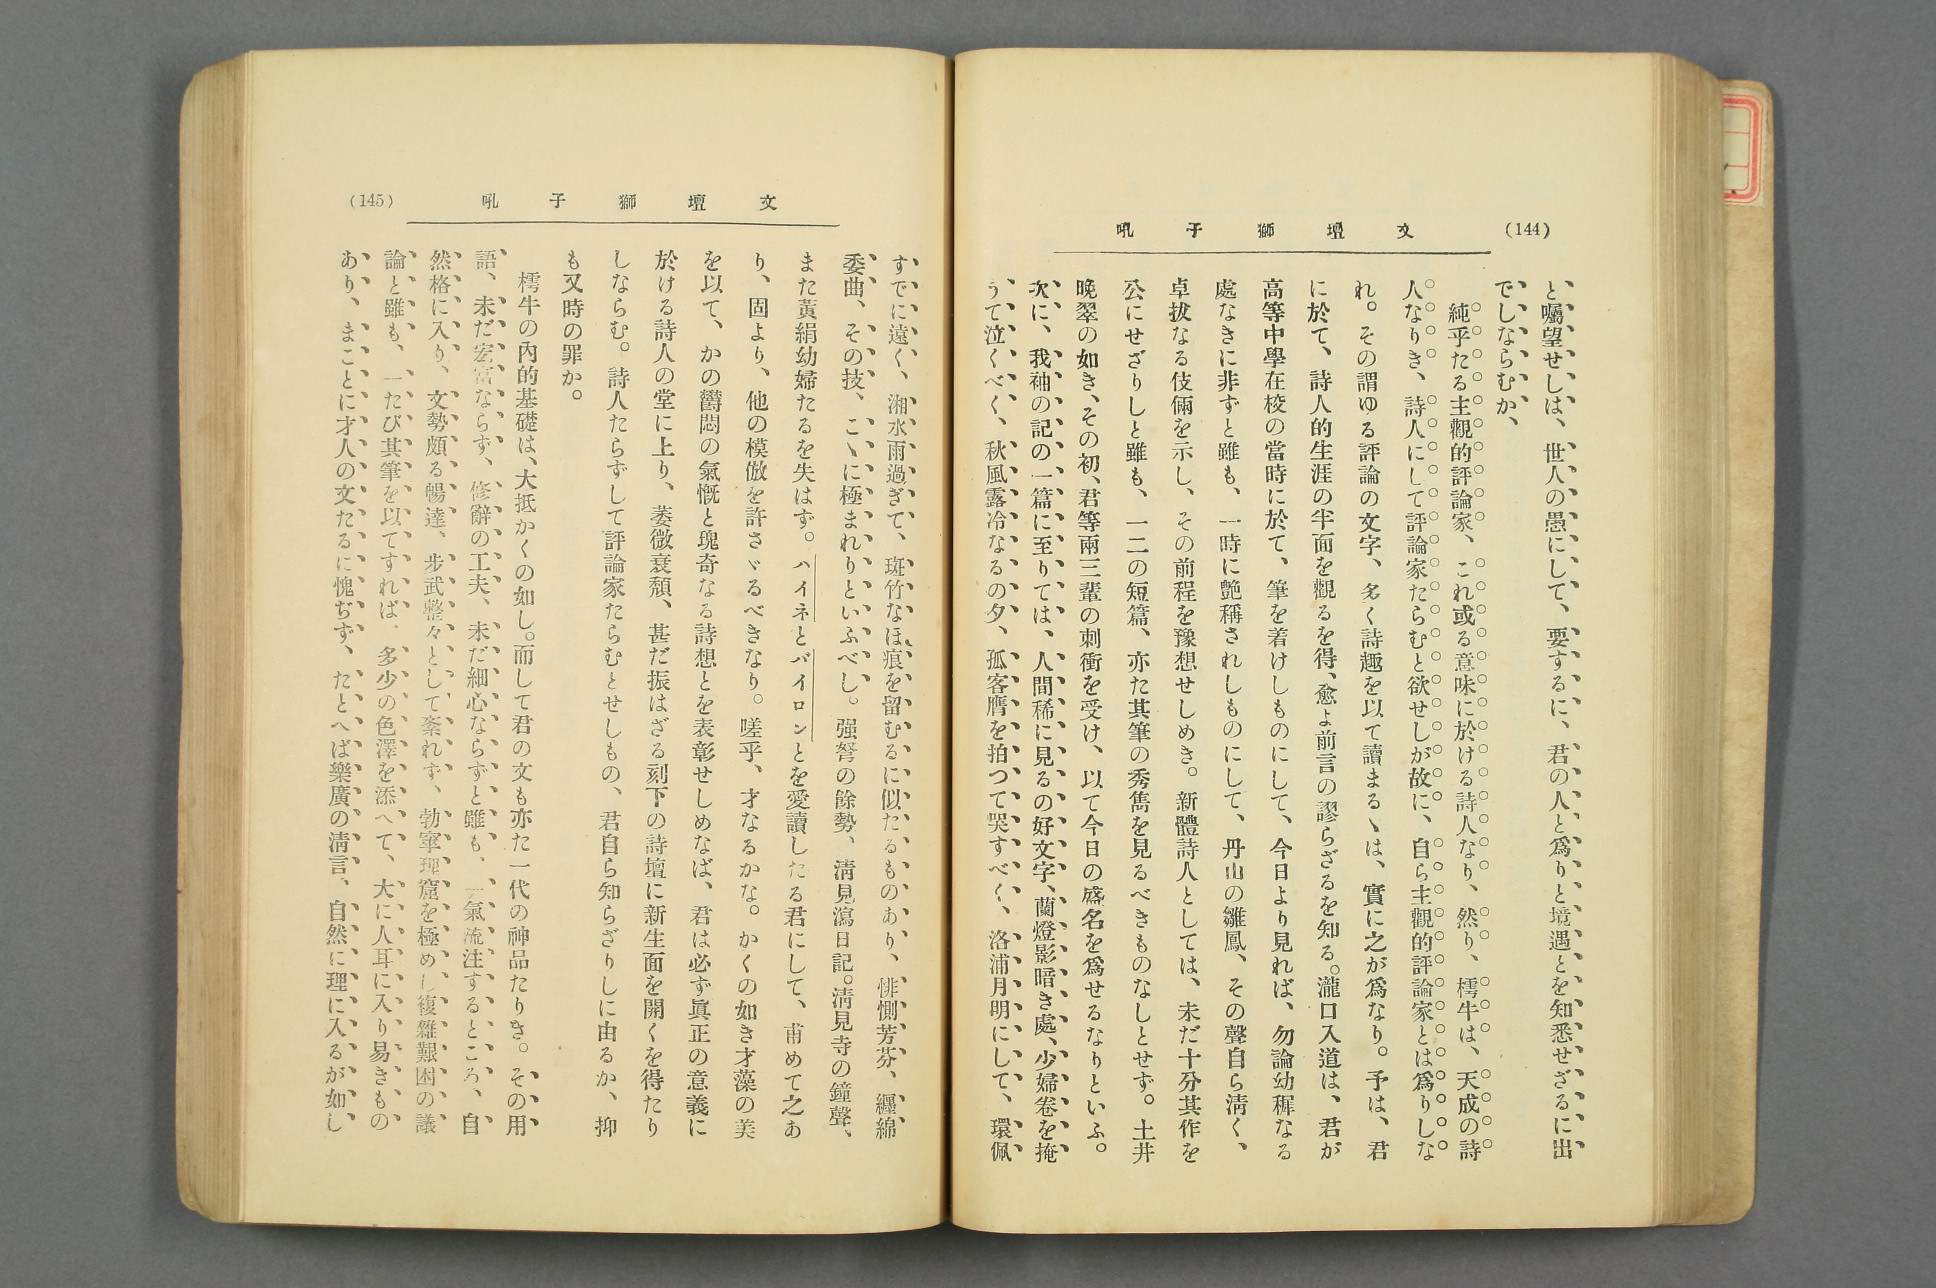 (144)
文壇獅子吼
と囑望せしは、世人の愚にして、要するに、君の人と爲りと境遇とを知悉せざるに出
でしならむか、
純乎たる主觀的評論家、これ或る意味に於ける詩人なり、然り、樗牛は、天成の詩
人なりき、詩人にして評論家たらむと欲せしが故に、自ら主觀的評論家とは爲りしな
れ。その謂ゆる評論の文字、多く詩趣を以て讀まるヽは、實に之が爲なり。予は、君
に於て、詩人的生涯の半面を觀るを得、愈よ前言の謬らざるを知る。瀧口入道は、君が
高等中學在校の當時に於て、筆を着けしものにして、今日より見れば、勿論幼穉なる
處なきに非ずと雖も、一時に艶稱されしものにして、丹山の雛鳳、その聲自ら清く、
卓拔なる伎倆を示し、その前程を豫想せしめき。新體詩人としては、未だ十分其作を
公にせざりしと雖も、一二の短篇、亦た其筆の秀雋を見るべきものなしとせず。土井
晩翠の如き、その初、君等兩三輩の刺衝を受け、以て今日の盛名を爲せるなりといふ。
次に、我袖の記の一篇に至りては、人間稀に見るの好文字、蘭燈影暗き處、少婦卷を掩
うて泣くべく、秋風露冷なるの夕、孤客膺を拍つて哭すべく、洛浦月明にして、環佩
(145)
文壇獅子吼
すでに遠く、湘水雨過ぎて、斑竹なほ痕を留むるに似たるものあり、悱惻芳芬、纒綿
委曲、その技、こヽに極まれりといふべし。强弩の餘勢、淸見瀉日記。淸見寺の鐘聲、
また黃絹幼婦たるを失はず。ハイネとバイロンとを愛讀したる君にして、甫めて之あ
り、固より、他の模倣を許さヾるべきなり。嗟乎、才なるかな。かくの如き才藻の美
を以て、かの欝悶の氣慨と瑰奇なる詩想とを表彰せしめなば、君は必ず眞正の意義に
於ける詩人の堂に上り、萎微衰頽、甚だ振はざる刻下の詩壇に新生面を開くを得たり
しならむ。詩人たらずして評論家たらむとせしもの、君自ら知らざりしに由るか、抑
も又時の罪か。
樗牛の內的基礎は、大抵かくの如し。而して君の文も亦た一代の神品たりき。その用
語、未だ宏富ならず、修辭の工夫、未だ細心ならずと雖も、一氣流注するところ、自
然格に入り、文勢頗る暢達、步武整々として紊れず、勃窣理窟を極めし複雜艱困の議
論と雖も、一たび其筆を以てすれば、多少の色澤を添へて、大に人耳に入り易きもの
あり、まことに才人の文たるに愧ぢず、たとへば樂廣の淸言、自然に理に入るが如し